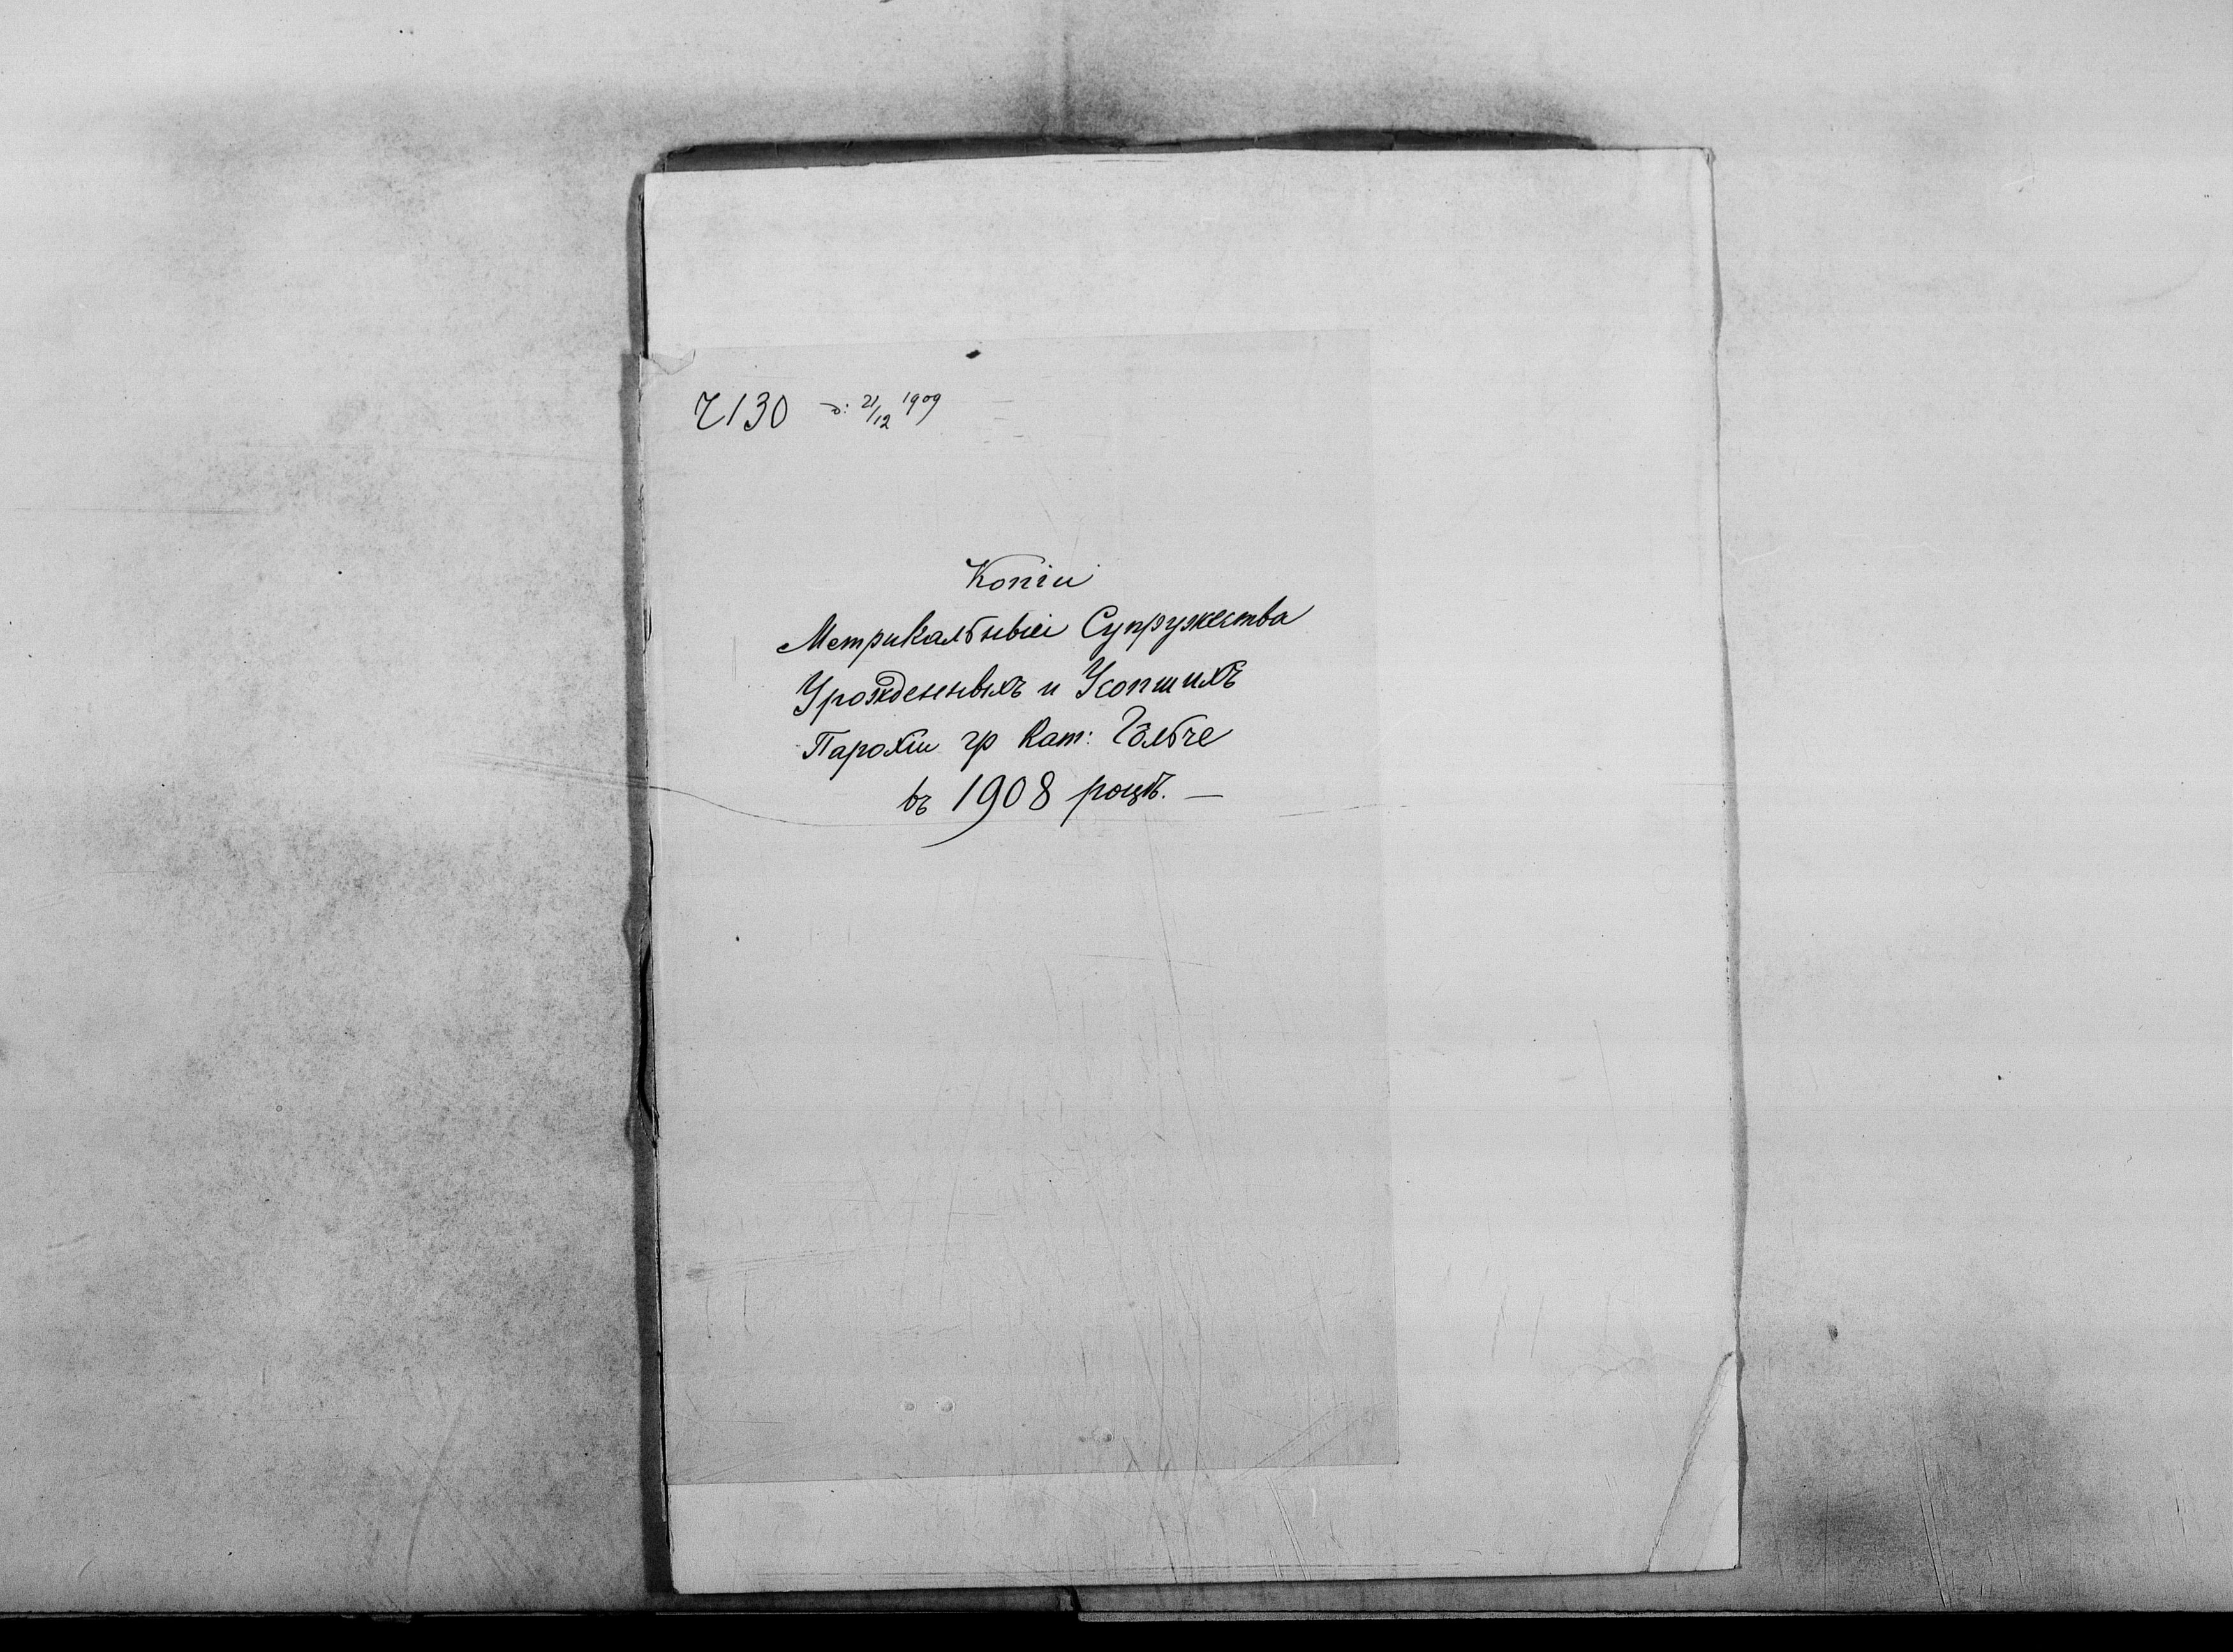 Ч 130 д: 21/12 1909
Копіи
Метрикальныи Супружества
Урожденныхъ и Усопшихъ
Парохіи гр Кат: Гôльче
въ 1908 роцѣ. —